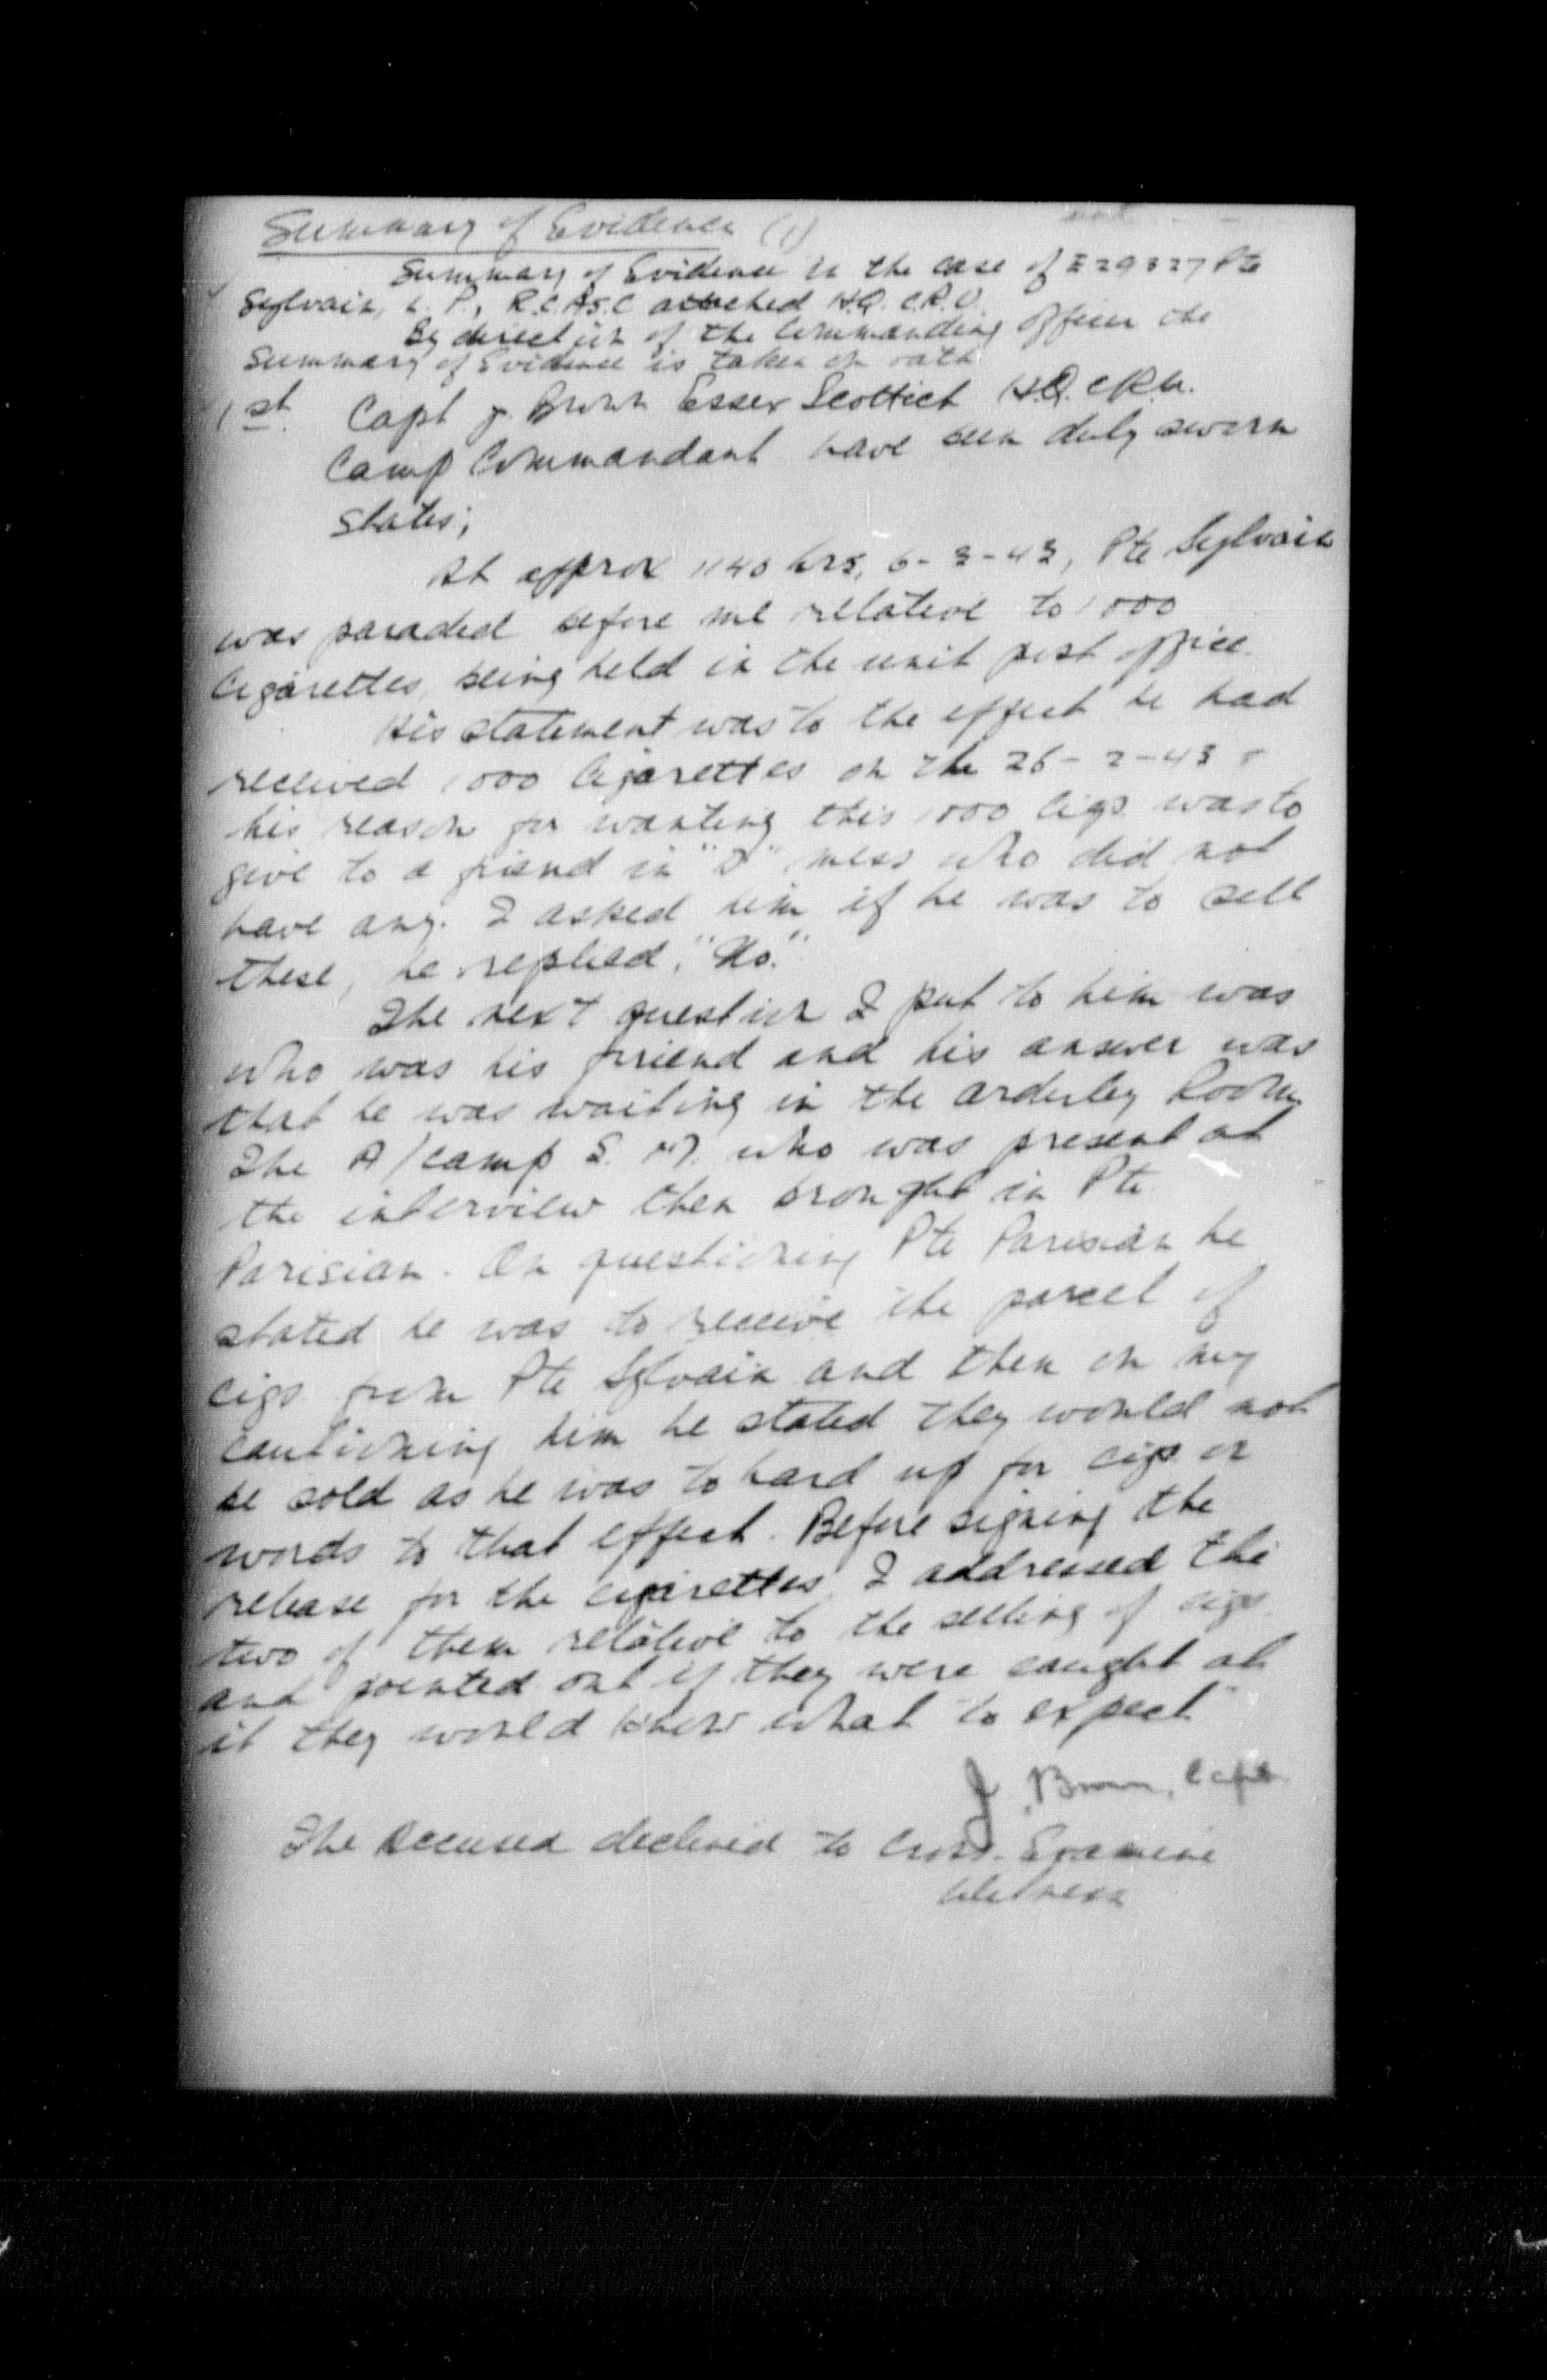 Summary of Evidence (1)
Summary of Evidence in the case of E29327 Pte
Sylvain, L. P., R.C.A.S.C attached H.Q. C.R.U.
By direction of the Commanding Officer the
Summary of Evidence is taken on oath
1st. Capt J. Brown Essex Scottish H.Q. CRU.
Camp Commandant have been duly sworn
states;
At approx 1140 hrs, 6-3-43, Pte Sylvain
was paraded before me relative to 1000
Cigarettes being held in the unit post office.
His statement was to the effect he had
received 1000 Cigarettes on the 26-2-43
his reason for wanting this 1000 Cigs was to
give to a friend in "D" mess who did not
have any. I asked him if he was to sell
these, he replied, "No."
The next question I put to him was
who was his friend and his answer was
that he was waiting in the orderley Room
The A/Camp S.M. who was present at
the interview then brought in Pte
Parisian. On questioning Pte Parisian he
stated he was to receive the parcel of
cigs from Pte Sylvain and then on my
cautioning him he stated they would not
be sold as he was to hard up for cigs or
words to that effect. Before signing the
release for the cigarettes I addressed the
two of them relative to the selling of cigs
and pointed out if they were caught at
it they would know what to expect
J. Brown, Capt.
The Accused declined to Cross-Examine
Witness